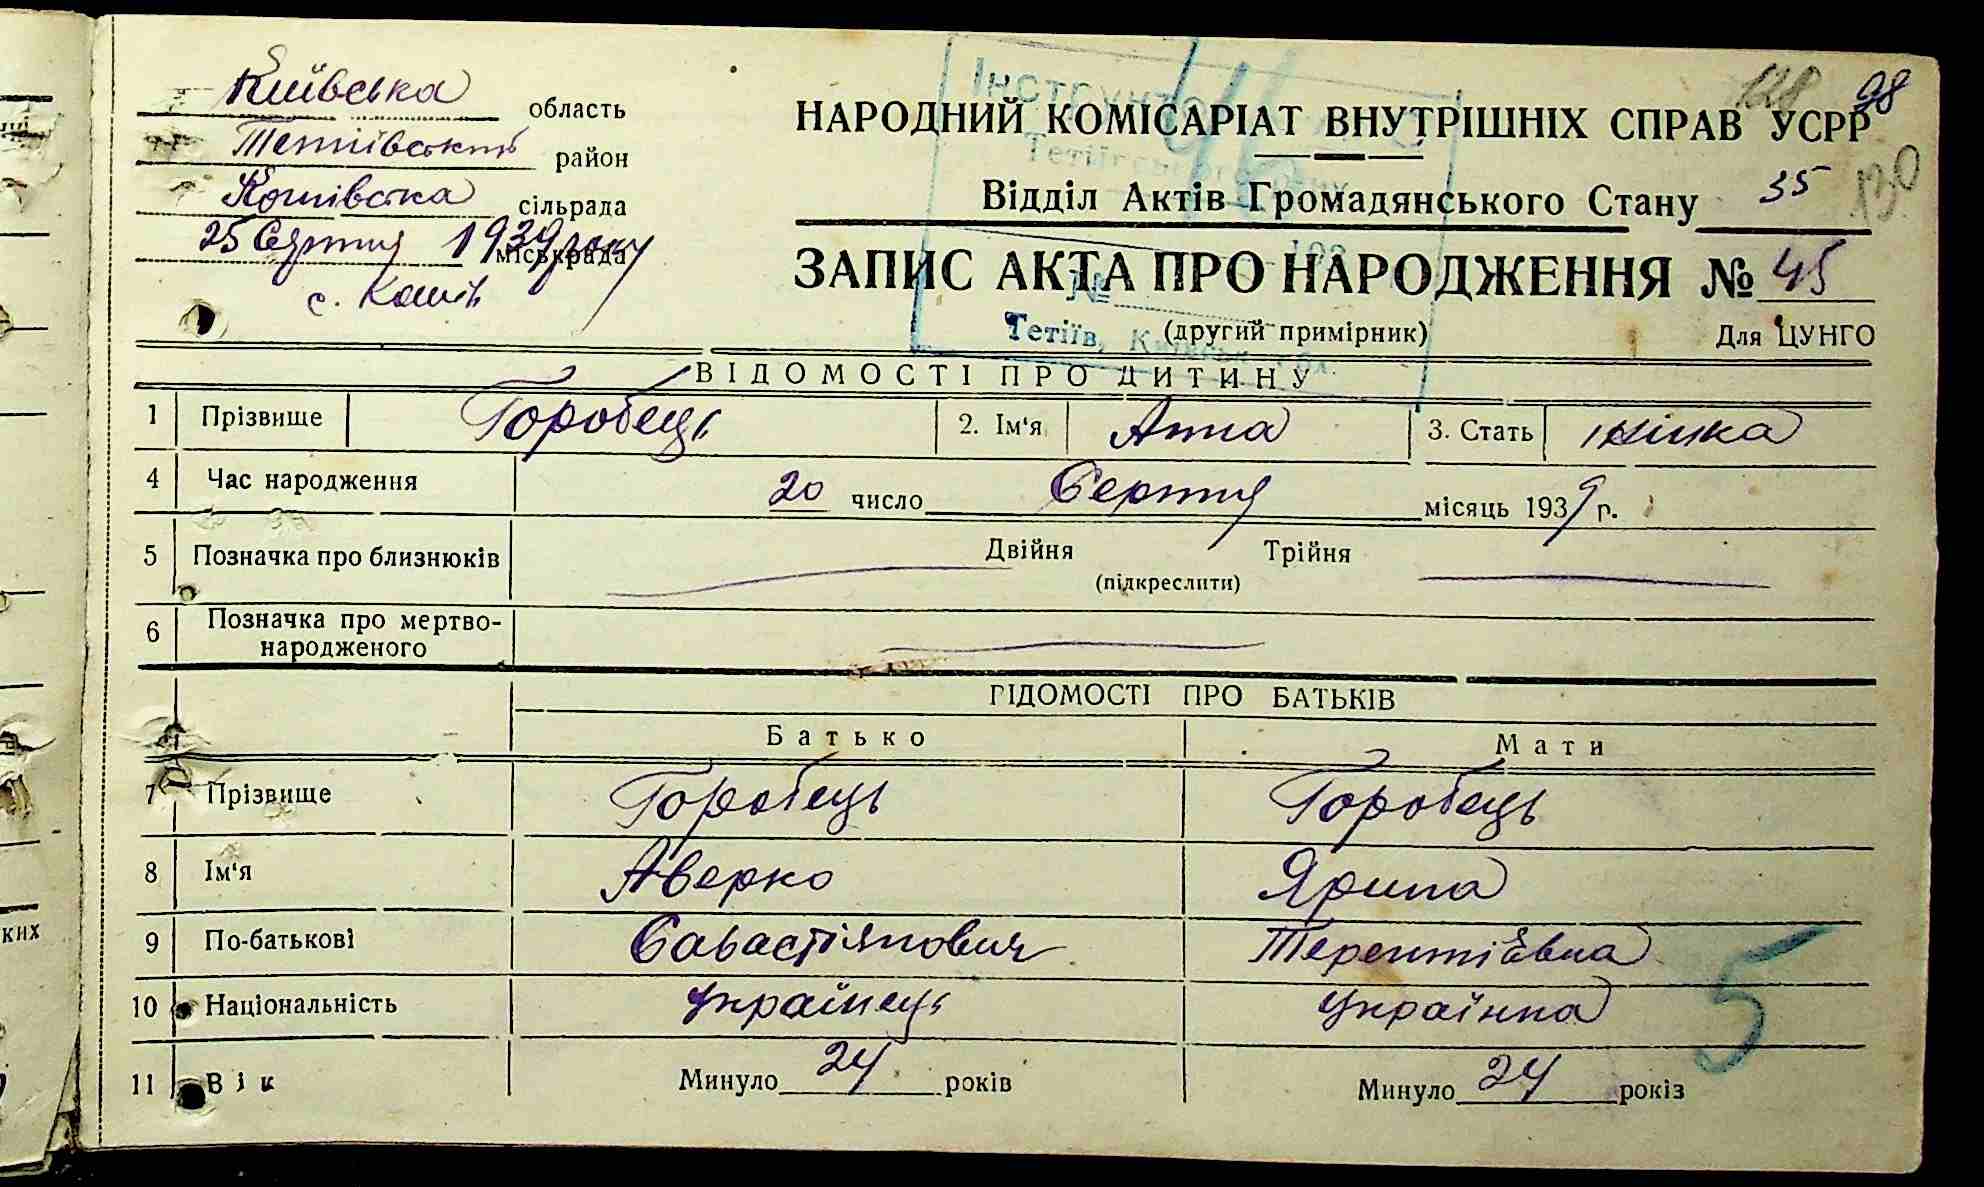 Київська область
Тетіївський район
Кошівська сільрада
25 Серпня 1939 року міськрада
с. Кошів
128 98
НАРОДНИЙ КОМІСАРІАТ ВНУТРІШНІХ СПРАВ УСРР
Відділ Актів Громадянського Стану 35 130
ЗАПИС АКТА ПРО НАРОДЖЕННЯ № 45
(другий примірник) Для ЦУНГО
Тетіїв,
ВІДОМОСТІ ПРО ДИТИНУ
1 Прізвище Горобець 2. Ім'я Анна 3. Стать жінка
4 Час народження 20 число Серпня місяць 1939 г.
5 Позначка про близнюків Двійня Трійня
(підкреслити)
6 Позначка про мертво-
народженого
ВІДОМОСТІ ПРО БАТЬКІВ
Батько Мати
7 Прізвище Горобець Горобець
8 Ім'я Аверко Ярина
9 По-батькові Савастіянович Терентієвна
10 Національність українець Українка
5
11 Вік Минуло 24 років Минуло 24 років
ких